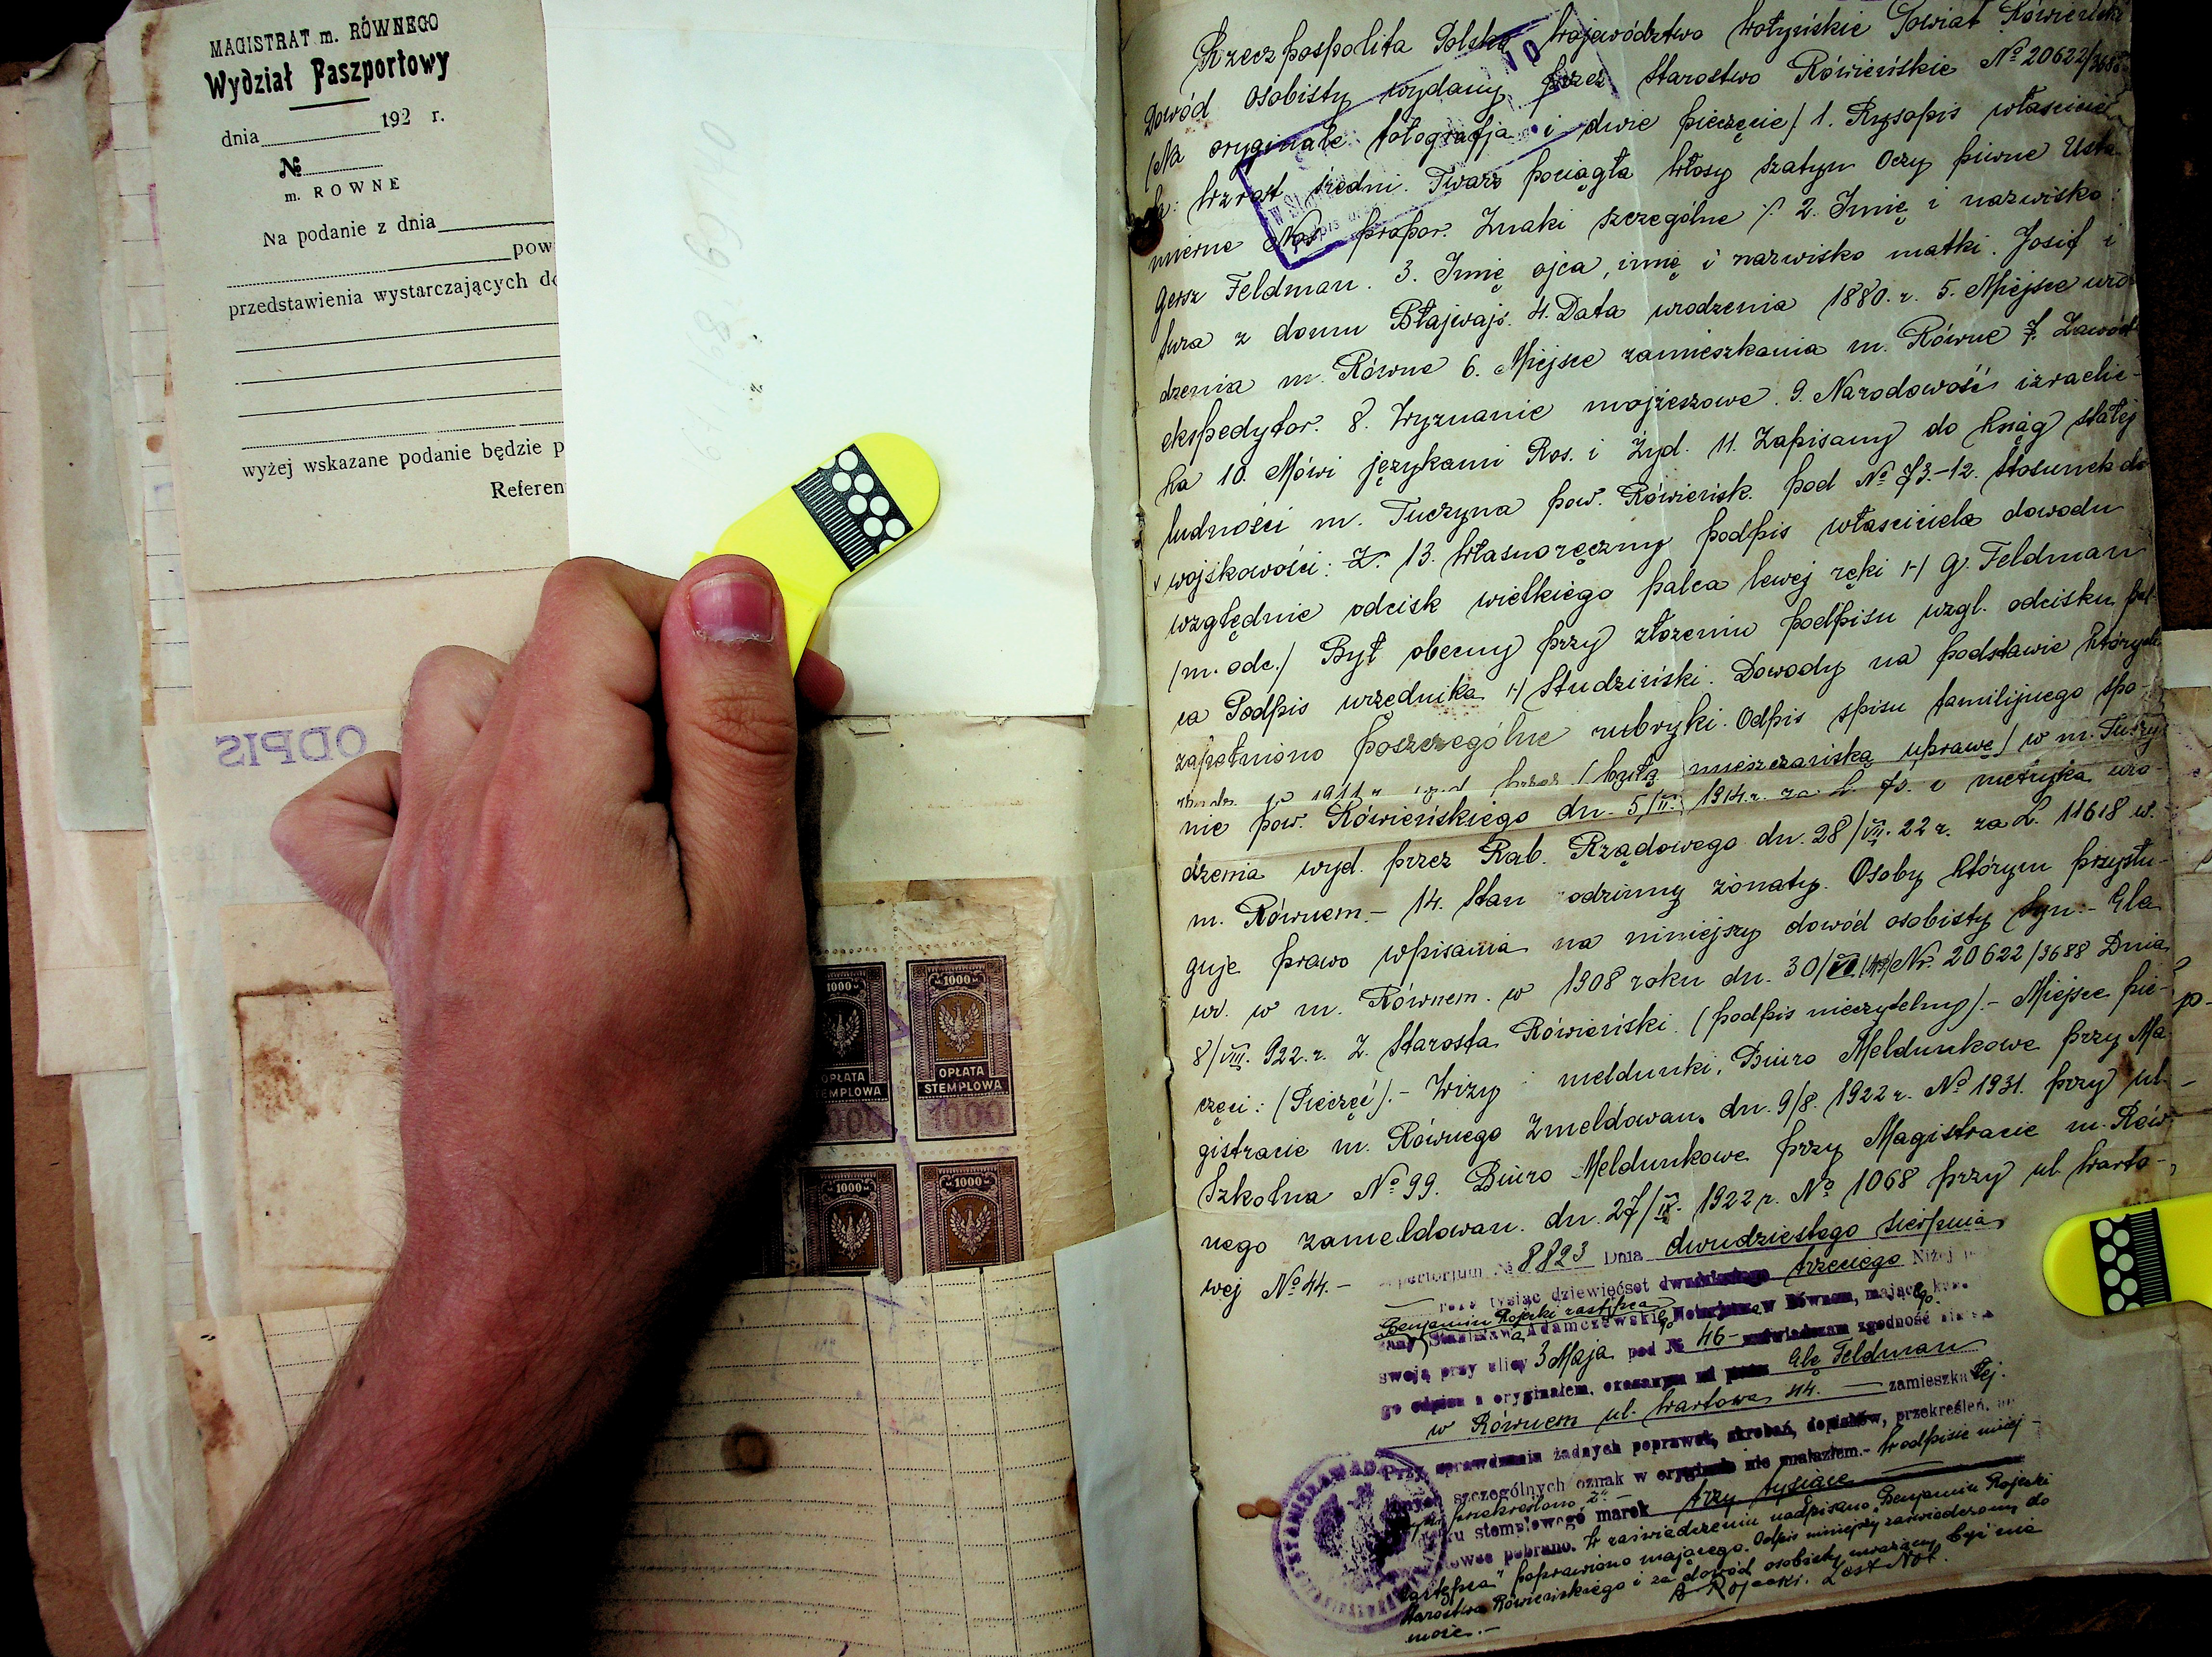 MAGISTRAT m. RÓWNEGO
Wydział Paszportowy
dnia 192 r.
№
m. ROWNE
Na podanie z dnia
pow
przedstawienia wystarczających do
wyżej wskazane podanie będzie p
Referen
ODPIS
1000 1000
OPŁATA STEMPLOWA
OPŁATA STEMPLOWA
1000
1000 1000
Rzeczpospolita Polska Województwo Wołyńskie Powiat Rówieński
Dowód osobisty wydany przez Starostwo Rówieńskie № 20622/3688
/Na oryginale fotografja i dwie pieczęcie/ 1. Rysopis właścicie
la: Wzrost średni. Twarz pociągła Włosy szatyn Oczy piwne Usta
mierne Nos propor. Znaki szczególne ·/· 2. Imię i nazwisko:
Gersz Feldman. 3. Imię ojca, imię i nazwisko matki. Josif i
Sura z domu Błajwajs. 4. Data urodzenia 1880. r. 5. Miejsce uro
dzenia m. Równe 6. Miejsce zamieszkania m. Równe 7. Zawód
ekspedytor. 8. Wyznanie mojżeszowe. 9. Narodowość izraelic-
ka 10. Mówi językami Ros. i Żyd. 11. Zapisany do ksiąg stałej
ludności m. Tuczyna pow. Rówieńsk. pod № 73.-12. Stosunek do
wojskowości: Z. 13. Własnoręczny podpis właściciela dowodu
względnie odcisk wielkiego palca lewej ręki /-/ G. Feldman
/m. odc./ Był obecny przy złożeniu podpisu wzgl. odcisku pal-
ca Podpis urzędnika /-/ Studziński. Dowody na podstawie których
zapełniono poszczególne rubryki. Odpis spisu familijnego spo-
rządz. w 1911 r. wyd. przez /byłą mieszczańską uprawę/ w m. Tuczy
nie pow. Rówieńskiego dn. 5/II. 1914 r. za L. 73. i metryka uro-
dzenia wyd. przez Rab. Rządowego dn. 28/VII. 22 r. za L. 11618 w.
m. Równem.- 14. Stan rodzinny żonaty. Osoby którym przysłu-
guje prawo wpisania na niniejszy dowód osobisty Syn.- Ela
ur. w m. Równem. w 1908 roku dn. 30/ № 20622/3688 Dnia
8/VIII. 922. r. Z. Starosta Rówieński. (podpis nieczytelny).- Miejsce pie-
częci: (Pieczęć).- Wizy i meldunki, Biuro Meldunkowe przy Ma
gistracie m. Równego Zmeldowan. dn. 9/8. 1922 r. № 1931. przy ul.-
Szkolna № 99. Biuro Meldunkowe przy Magistracie m. Rów-
nego zameldowan. dn. 27/IX. 1922 r. № 1068 przy ul Warto-
wej № 44.-
Repertorjum № 8823 Dnia dwudziestego sierpnia
roku tysiąc dziewięćset dwudziestego trzeciego Niżej
Benjamin Rojecki zastępca
Stanisław Adamczewskiego Notarjusza w Równem, mającego
swoją przy ulicy 3 Maja pod № 46- poświadczam zgodność
go odpisu z oryginałem, okazanym mi przez Elę Feldman
w Równem ul. Wartowa 44.- zamieszkałej.
Przy sprawdzaniu żadnych poprawek, skrobań, dopisków, przekreśleń,
innych szczególnych oznak w oryginale nie znalazłem.- W odpisie niniej-
szym przekreślono „Z“.-
stemplowego marek trzy tysiące
pobrano. W zaświadczeniu nadpisano „Benjamin Rojecki
zastępca“ poprawiono mającego. Odpis niniejszy zaświadczony do
Starostwa Rówieńskiego i za dowód osobisty uważany być nie
może.-
B. Rojecki. Zast. Not.